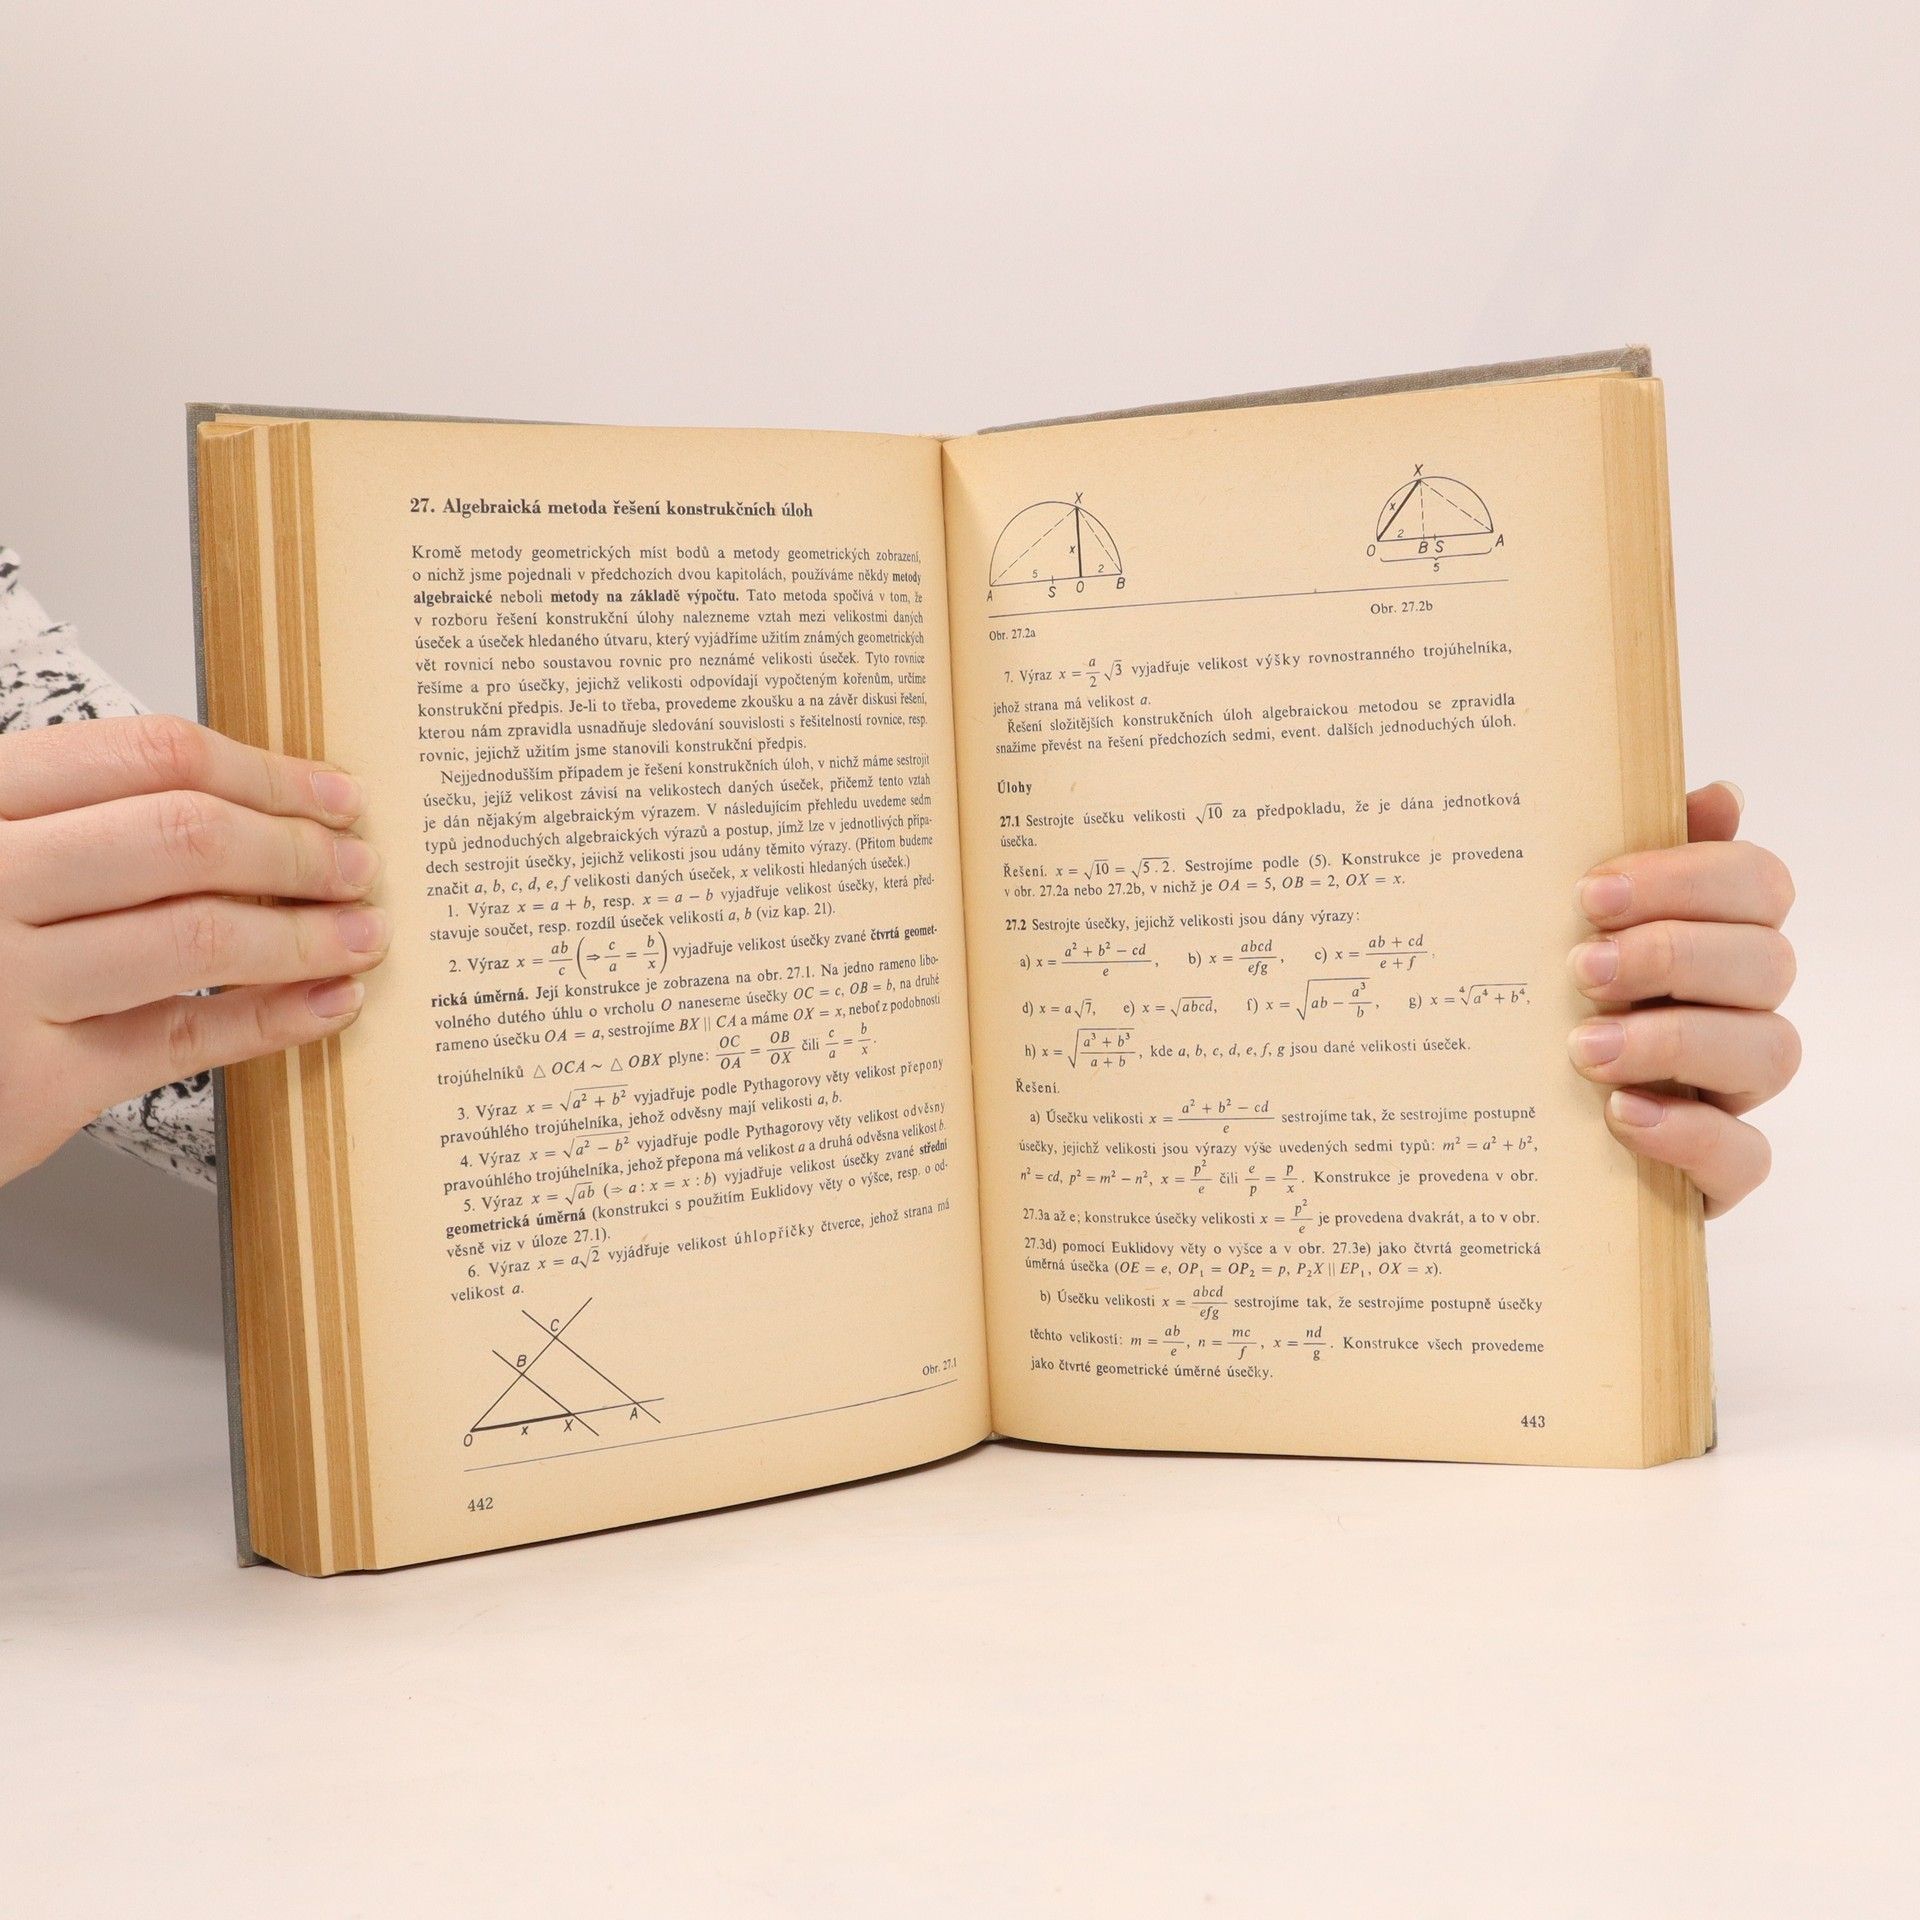 27. Algebraická metoda řešení konstrukčních úloh
Kromě metody geometrických míst bodů a metody geometrických zobrazení,
o nichž jsme pojednali v předchozích dvou kapitolách, používáme někdy metody
algebraické neboli metody na základě výpočtu. Tato metoda spočívá v tom, že
v rozboru řešení konstrukční úlohy nalezneme vztah mezi velikostmi daných
úseček a úseček hledaného útvaru, který vyjádříme užitím známých geometrických
vět rovnicí nebo soustavou rovnic pro neznámé velikosti úseček. Tyto rovnice
řešíme a pro úsečky, jejichž velikosti odpovídají vypočteným kořenům, určíme
konstrukční předpis. Je-li to třeba, provedeme zkoušku a na závěr diskusi řešení,
kterou nám zpravidla usnadňuje sledování souvislosti s řešitelností rovnice, resp.
rovnic, jejichž užitím jsme stanovili konstrukční předpis.
Nejjednodušším případem je řešení konstrukčních úloh, v nichž máme sestrojit
úsečku, jejíž velikost závisí na velikostech daných úseček, přičemž tento vztah
je dán nějakým algebraickým výrazem. V následujícím přehledu uvedeme sedm
typů jednoduchých algebraických výrazů a postup, jímž lze v jednotlivých přípa-
dech sestrojit úsečky, jejichž velikosti jsou udány těmito výrazy. (Přitom budeme
značit a, b, c, d, e, f velikosti daných úseček, x velikosti hledaných úseček.)
1. Výraz x = a + b, resp. x = a − b vyjadřuje velikost úsečky, která před-
stavuje součet, resp. rozdíl úseček velikostí a, b (viz kap. 21).
2. Výraz x = ab/c (⇒ c/a = b/x) vyjadřuje velikost úsečky zvané čtvrtá geomet-
rická úměrná. Její konstrukce je zobrazena na obr. 27.1. Na jedno rameno libo-
volného dutého úhlu o vrcholu O naneseme úsečky OC = c, OB = b, na druhé
rameno úsečku OA = a, sestrojíme BX || CA a máme OX = x, neboť z podobnosti
trojúhelníků △ OCA ~ △ OBX plyne: OC/OA = OB/OX čili c/a = b/x.
3. Výraz x = √(a² + b²) vyjadřuje podle Pythagorovy věty velikost přepony
pravoúhlého trojúhelníka, jehož odvěsny mají velikosti a, b.
4. Výraz x = √(a² − b²) vyjadřuje podle Pythagorovy věty velikost odvěsny
pravoúhlého trojúhelníka, jehož přepona má velikost a a druhá odvěsna velikost b.
5. Výraz x = √ab (⇒ a : x = x : b) vyjadřuje velikost úsečky zvané střední
geometrická úměrná (konstrukci s použitím Euklidovy věty o výšce, resp. o od-
věsně viz v úloze 27.1).
6. Výraz x = a√2 vyjádřuje velikost úhlopříčky čtverce, jehož strana má
velikost a.
C
B
O x X A
Obr. 27.1
442
X
x
5 2
A S O B
Obr. 27.2a
X
x
2
O B S A
5
Obr. 27.2b
7. Výraz x = a/2 √3 vyjadřuje velikost výšky rovnostranného trojúhelníka,
jehož strana má velikost a.
Řešení složitějších konstrukčních úloh algebraickou metodou se zpravidla
snažíme převést na řešení předchozích sedmi, event. dalších jednoduchých úloh.
Úlohy
27.1 Sestrojte úsečku velikosti √10 za předpokladu, že je dána jednotková
úsečka.
Řešení. x = √10 = √5 . 2. Sestrojíme podle (5). Konstrukce je provedena
v obr. 27.2a nebo 27.2b, v nichž je OA = 5, OB = 2, OX = x.
27.2 Sestrojte úsečky, jejichž velikosti jsou dány výrazy:
a) x = (a² + b² − cd)/e, b) x = abcd/efg, c) x = (ab + cd)/(e + f),
d) x = a√7, e) x = √abcd, f) x = √(ab − a³/b), g) x = ⁴√(a⁴ + b⁴),
h) x = √((a³ + b³)/(a + b)), kde a, b, c, d, e, f, g jsou dané velikosti úseček.
Řešení.
a) Úsečku velikosti x = (a² + b² − cd)/e sestrojíme tak, že sestrojíme postupně
úsečky, jejichž velikosti jsou výrazy výše uvedených sedmi typů: m² = a² + b²,
n² = cd, p² = m² − n², x = p²/e čili e/p = p/x. Konstrukce je provedena v obr.
27.3a až e; konstrukce úsečky velikosti x = p²/e je provedena dvakrát, a to v obr.
27.3d) pomocí Euklidovy věty o výšce a v obr. 27.3e) jako čtvrtá geometrická
úměrná úsečka (OE = e, OP₁ = OP₂ = p, P₂X || EP₁, OX = x).
b) Úsečku velikosti x = abcd/efg sestrojíme tak, že sestrojíme postupně úsečky
těchto velikostí: m = ab/e, n = mc/f, x = nd/g. Konstrukce všech provedeme
jako čtvrté geometrické úměrné úsečky.
443